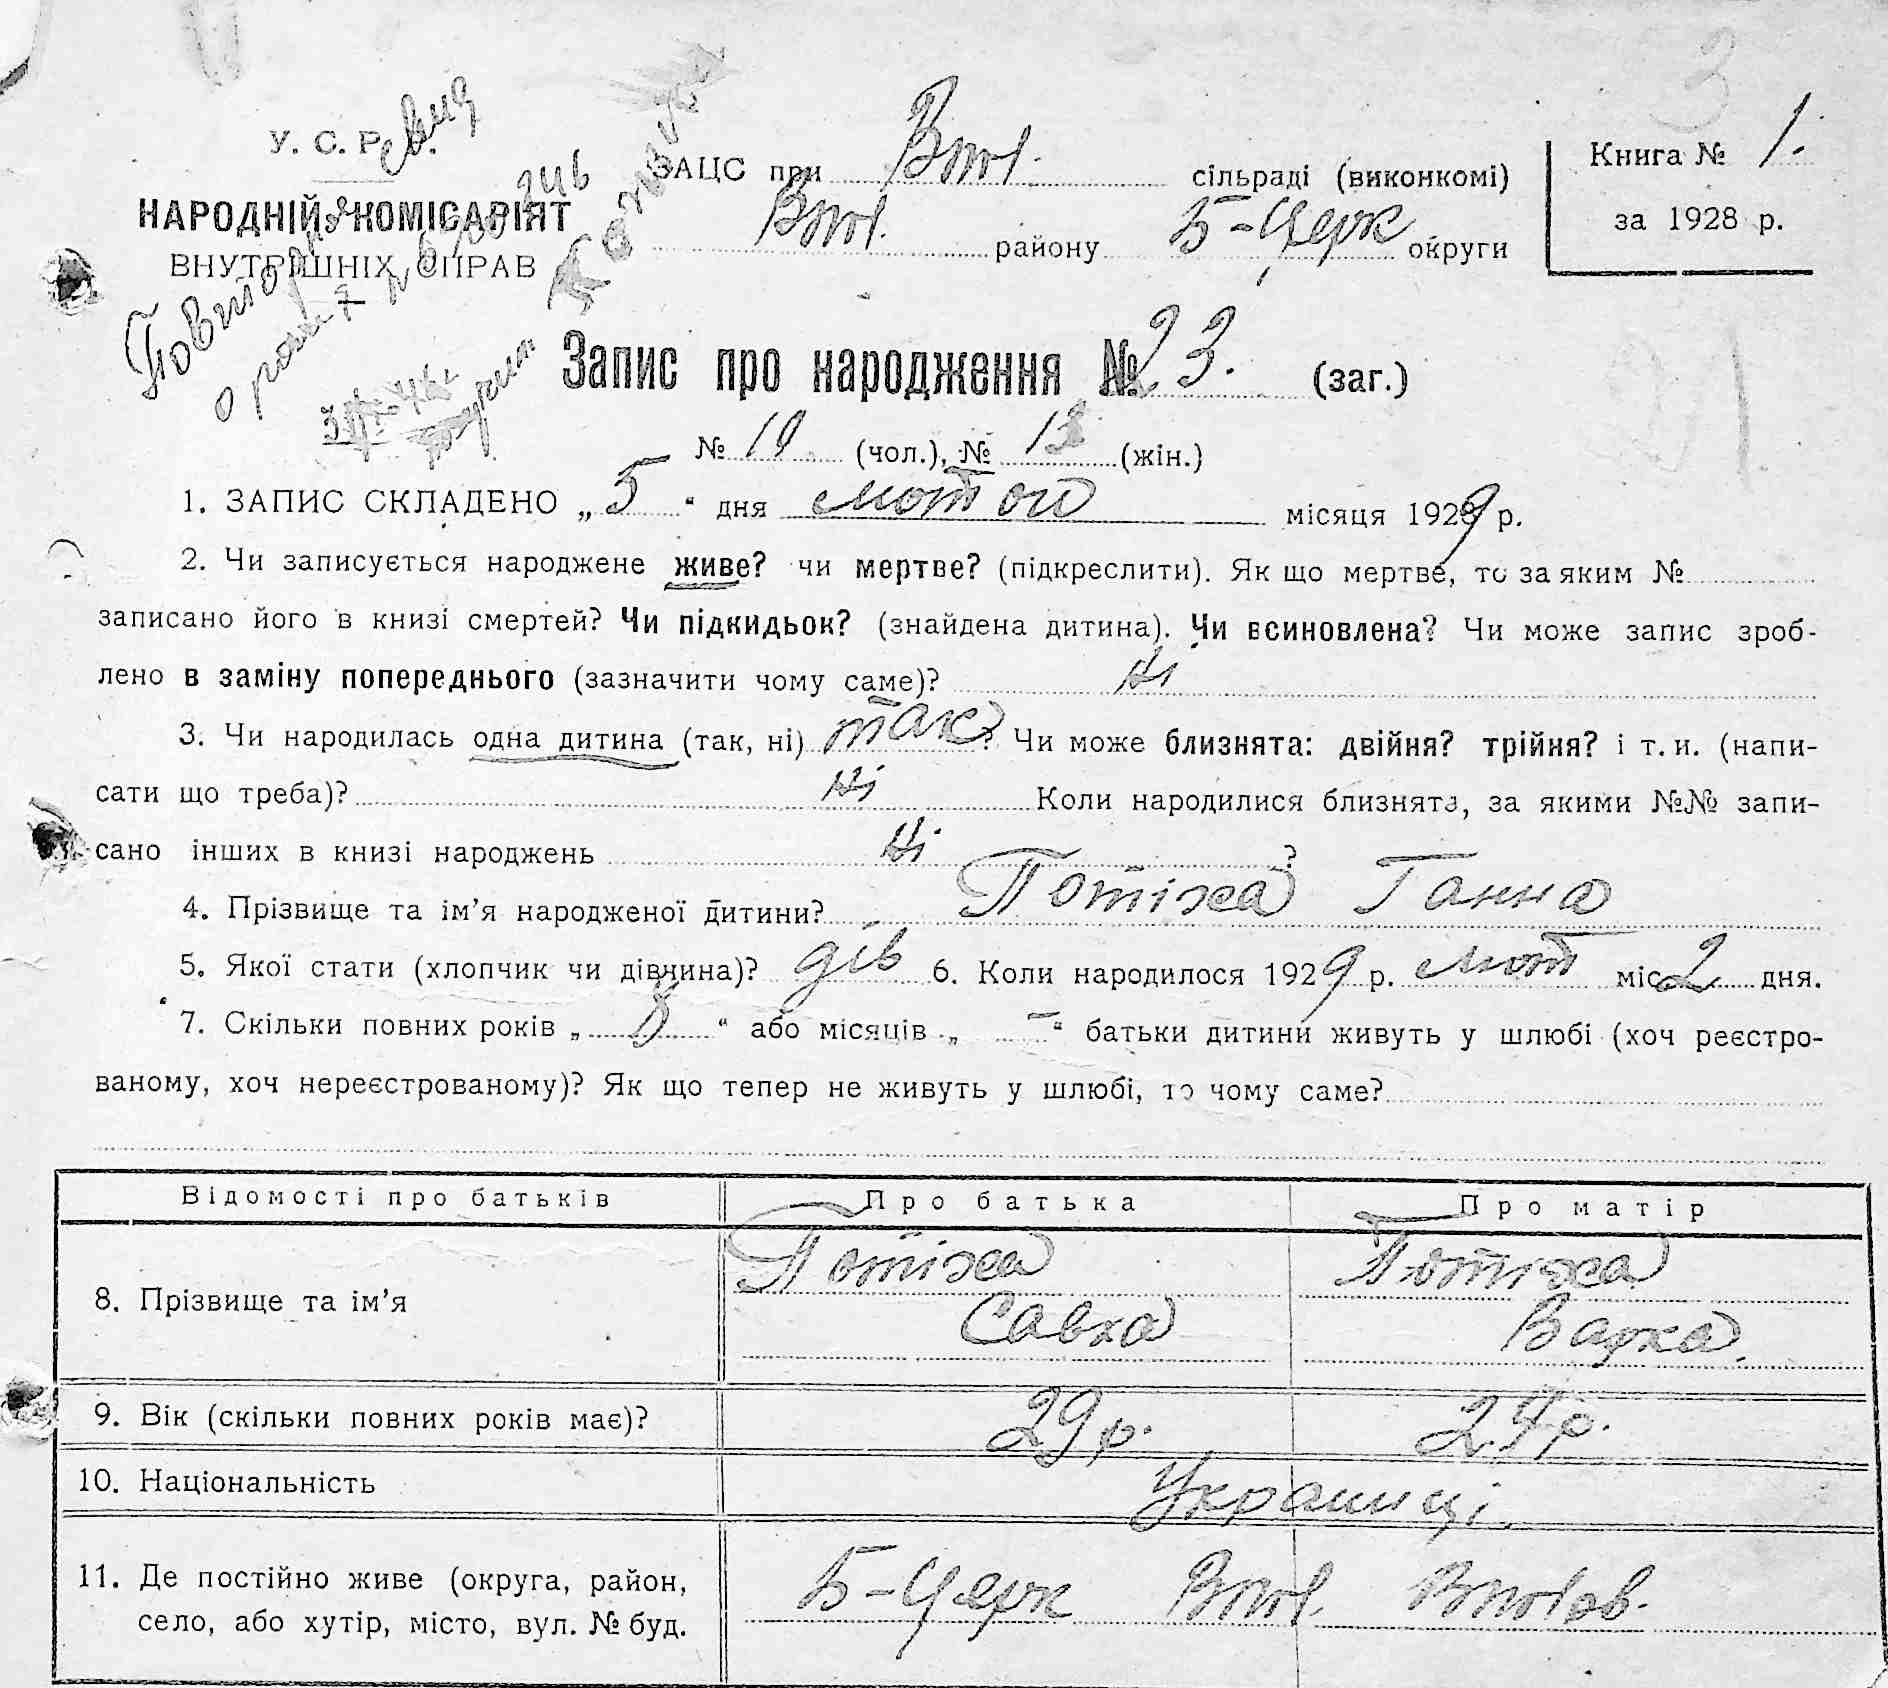 У. С. Р.
НАРОДНІЙ КОМІСАРІЯТ
ВНУТРІШНІХ СПРАВ
ЗАЦС при сільраді (виконкомі)
району Б-Церк округи
Книга № 1.
за 1928 р.
Запис про народження № 23. (заг.)
№ (чол.), № (жін.)
1. ЗАПИС СКЛАДЕНО „5" дня лютого місяця 1929 р.
2. Чи записується народжене живе? чи мертве? (підкреслити). Як що мертве, то за яким №
записано його в книзі смертей? Чи підкидьок? (знайдена дитина). Чи всиновлена? Чи може запис зроб-
лено в заміну попереднього (зазначити чому саме)? Ні
3. Чи народилась одна дитина (так, ні) так? Чи може близнята: двійня? трійня? і т. и. (напи-
сати що треба)? Ні Коли народилися близнята, за якими №№ запи-
сано інших в книзі народжень Ні ?
4. Прізвище та ім'я народженої дитини? Потіха Ганна
5. Якої стати (хлопчик чи дівчина)? дів 6. Коли народилося 1929 р. лют міс. 2 дня.
7. Скільки повних років „ 8 " або місяців „ — " батьки дитини живуть у шлюбі (хоч реєстро-
ваному, хоч нереєстрованому)? Як що тепер не живуть у шлюбі, то чому саме?
Відомості про батьків Про батька Про матір
8. Прізвище та ім'я Потіха Савка Потіха Варка
9. Вік (скільки повних років має)? 29 р. 24 р.
10. Національність Українці.
11. Де постійно живе (округа, район,
село, або хутір, місто, вул. № буд. Б-Церк